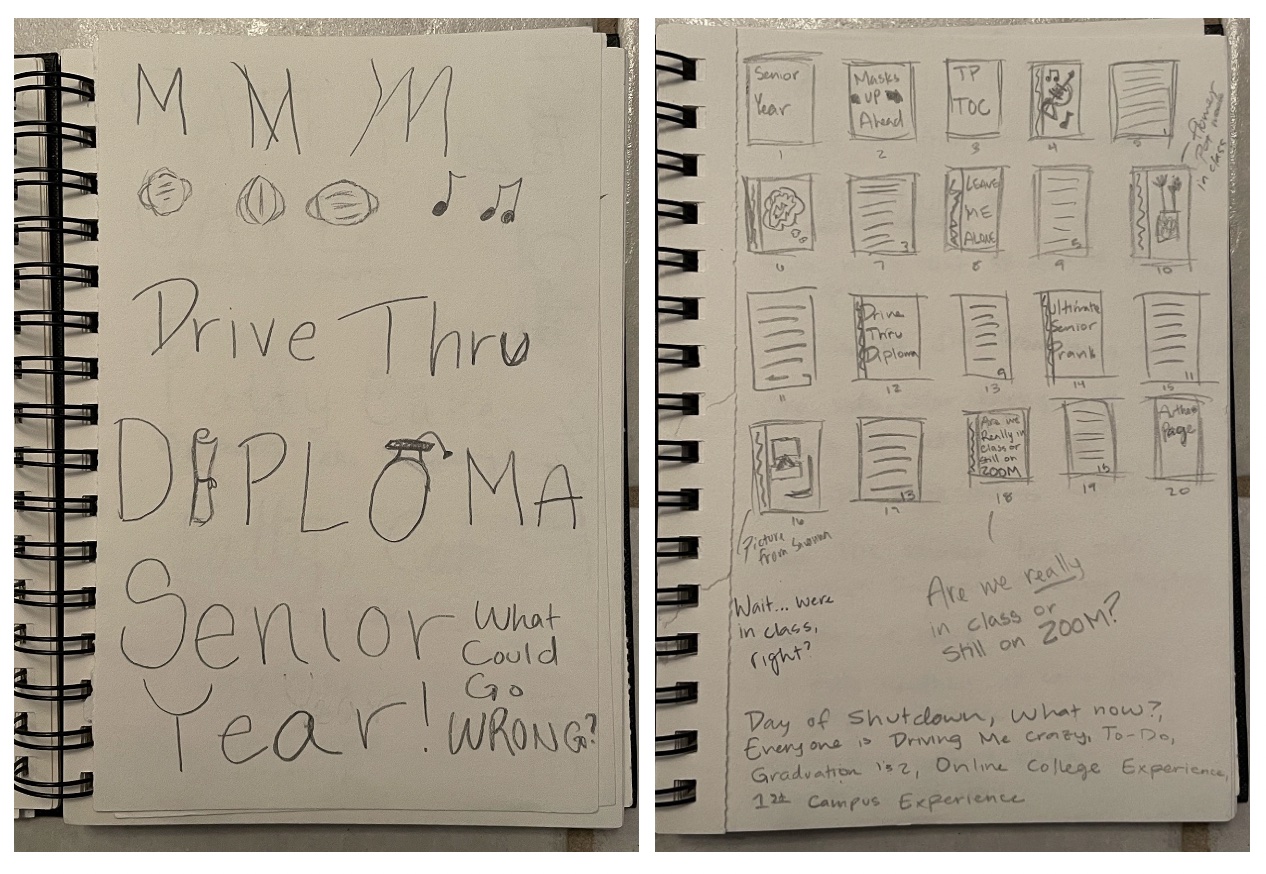 M M M
Drive Thru
DIPLOMA
Senior
Year!
What
Could
Go
WRONG?
Senior
Year
1
Masks
UP
Ahead
2
TP
TOC
3
4
5
in class
6
3
7
LEAVE
ME
ALONE
8
5
9
10
7
11
Drive
Thru
Diploma
12
9
13
Ultimate
Senior
Prank
14
11
15
16
Picture
from
13
17
Are we
Really in
class or
still on
ZOOM
18
15
19
Author
Page
20
Wait... were
in class,
right?
Are we really
in class or
still on ZOOM?
Day of Shutdown, What now?,
Everyone is Driving Me Crazy, To-Do,
Graduation 1 & 2, Online College Experience,
1st Campus Experience